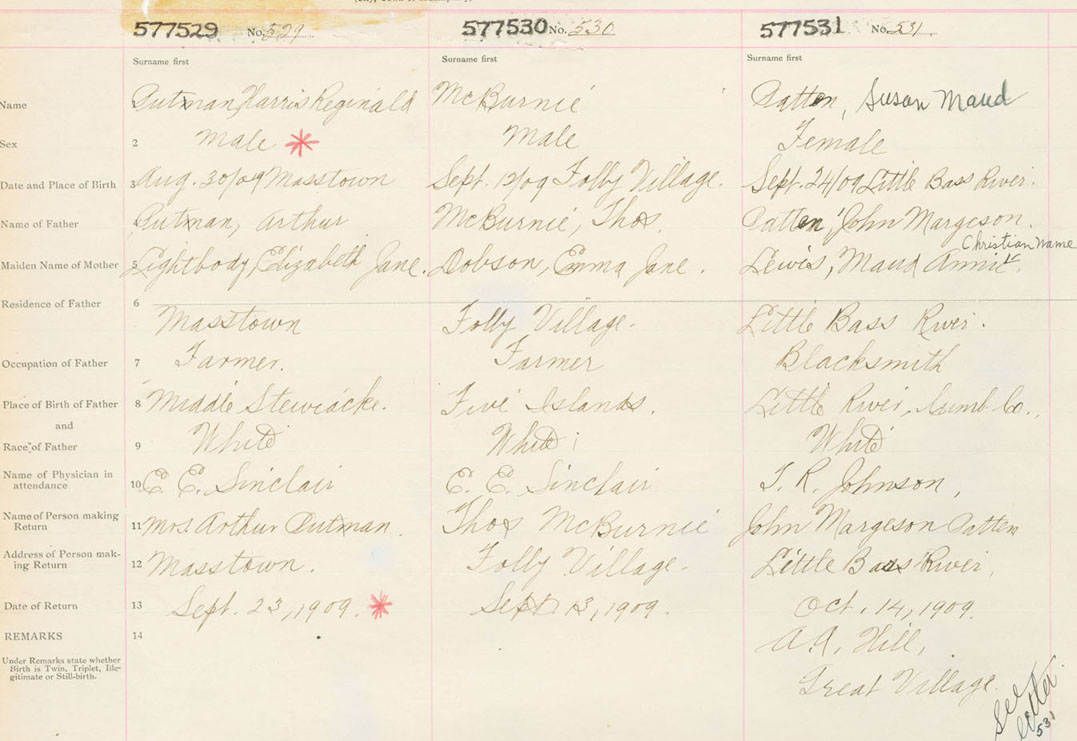 577529 No. 529 577530 No. 530 577531 No. 531.
Surname first Surname first Surname first
Name 1 Putman, Harris Reginald McBurnie Patten, Susan Maud
Sex 2 Male * Male Female
Date and Place of Birth 3 Aug. 30/09 Masstown Sept. 12/09 Folly Village. Sept. 24/09 Little Bass River.
Name of Father Putman, Arthur McBurnie, Thos. Patten, John Margeson.
Christian name
Maiden Name of Mother 5 Lightbody, Elizabeth Jane. Dobson, Emma Jane. Lewis, Maud Annie.
Residence of Father 6
Masstown Folly Village. Little Bass River.
Occupation of Father 7 Farmer. Farmer Blacksmith
Place of Birth of Father 8 Middle Stewiacke. Five Islands. Little River, Cumb. Co.,
and
Race of Father 9 White White White
Name of Physician in
attendance 10 E. E. Sinclair E. E. Sinclair T. R. Johnson,
Name of Person making
Return 11 Mrs Arthur Putman. Thos McBurnie John Margeson Patten
Address of Person mak-
ing Return 12 Masstown. Folly Village. Little Bass River,
Date of Return 13 Sept. 23, 1909. * Sept. 13, 1909. Oct. 14, 1909.
REMARKS 14 A. A. Hill,
Under Remarks state whether
Birth is Twin, Triplet, Ille-
gitimate or Still-birth.
Great Village.
See
letter
531